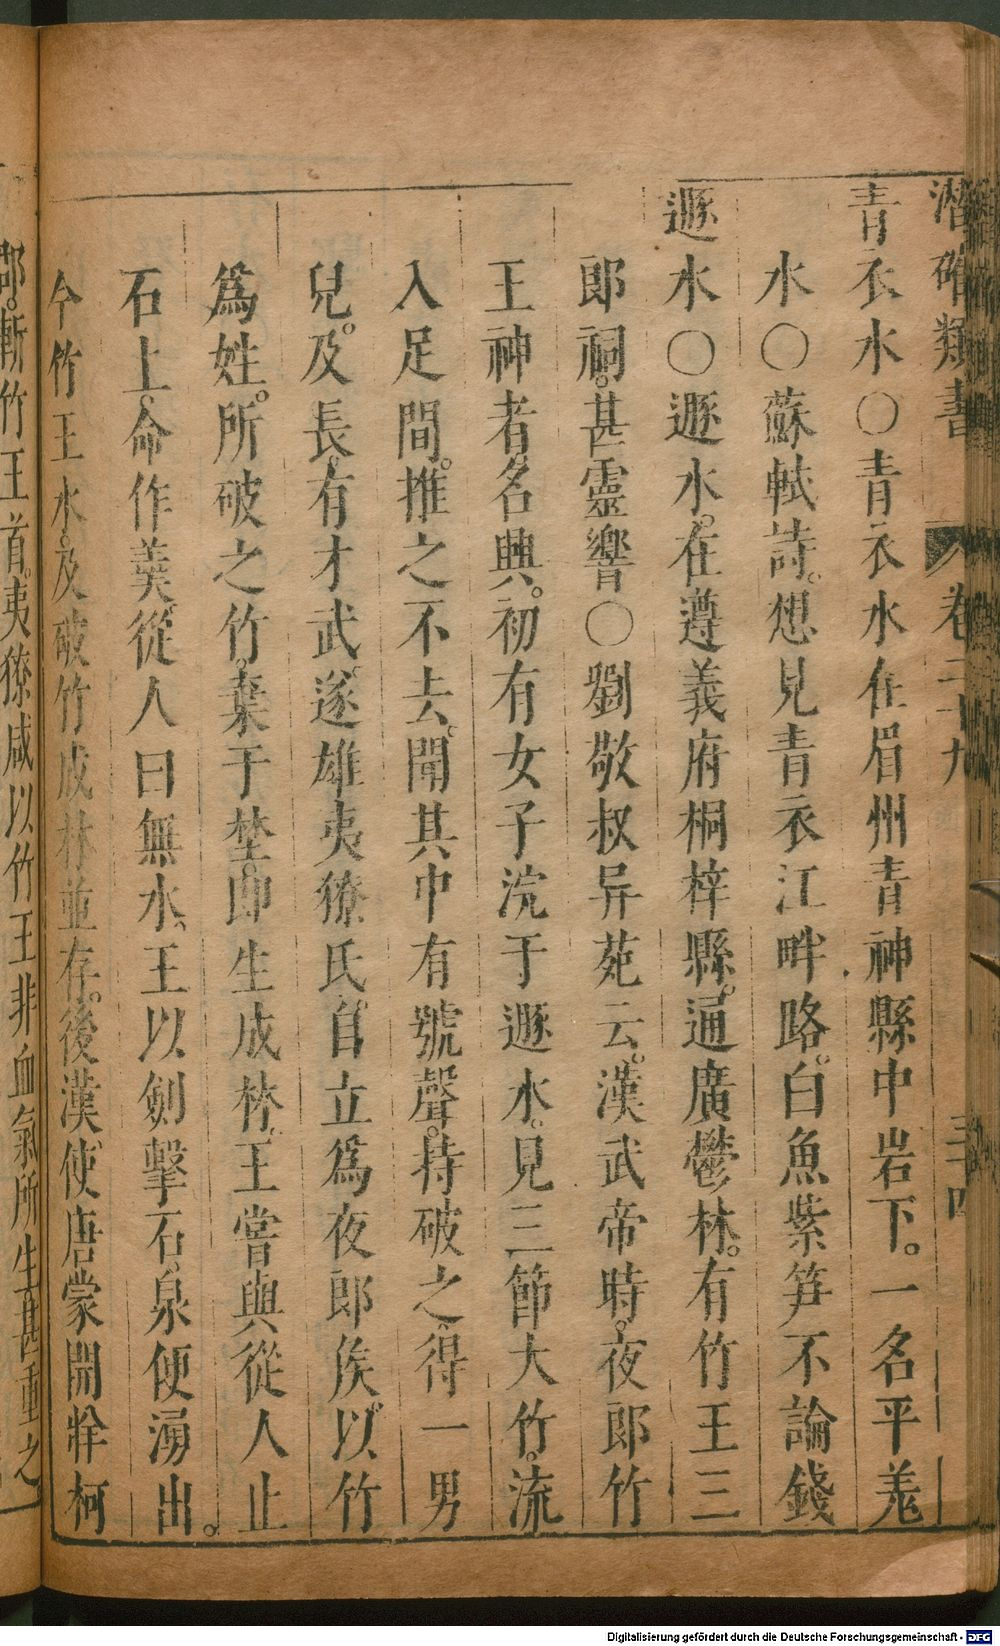 潛確類書 卷二十九 三十四
青衣水〇青衣水在眉州青神縣中岩下。一名平羗
水〇蘇軾詩。想見青衣江畔路。白魚紫笋不論錢
遯水〇遯水。在遵義府桐梓縣。通廣鬱林。有竹王三
郎祠。甚靈響〇劉敬叔异苑云。漢武帝時。夜郎竹
王神者。名興。初有女子浣于遯水。見三節大竹。流
入足間。推之不去。聞其中有號聲。持破之。得一男
兒。及長。有才武。遂雄夷獠氏。自立爲夜郎侯。以竹
爲姓。所破之竹。棄于埜。即生成林。王嘗與從人止
石上。命作羮。從人曰無水。王以劍擊石。泉便湧出。
今竹王水。及破竹成林並存。後漢使唐蒙開牂柯
郡。斬竹王首。夷獠咸以竹王非血氣所生。甚重之
Digitalisierung gefördert durch die Deutsche Forschungsgemeinschaft - DFG